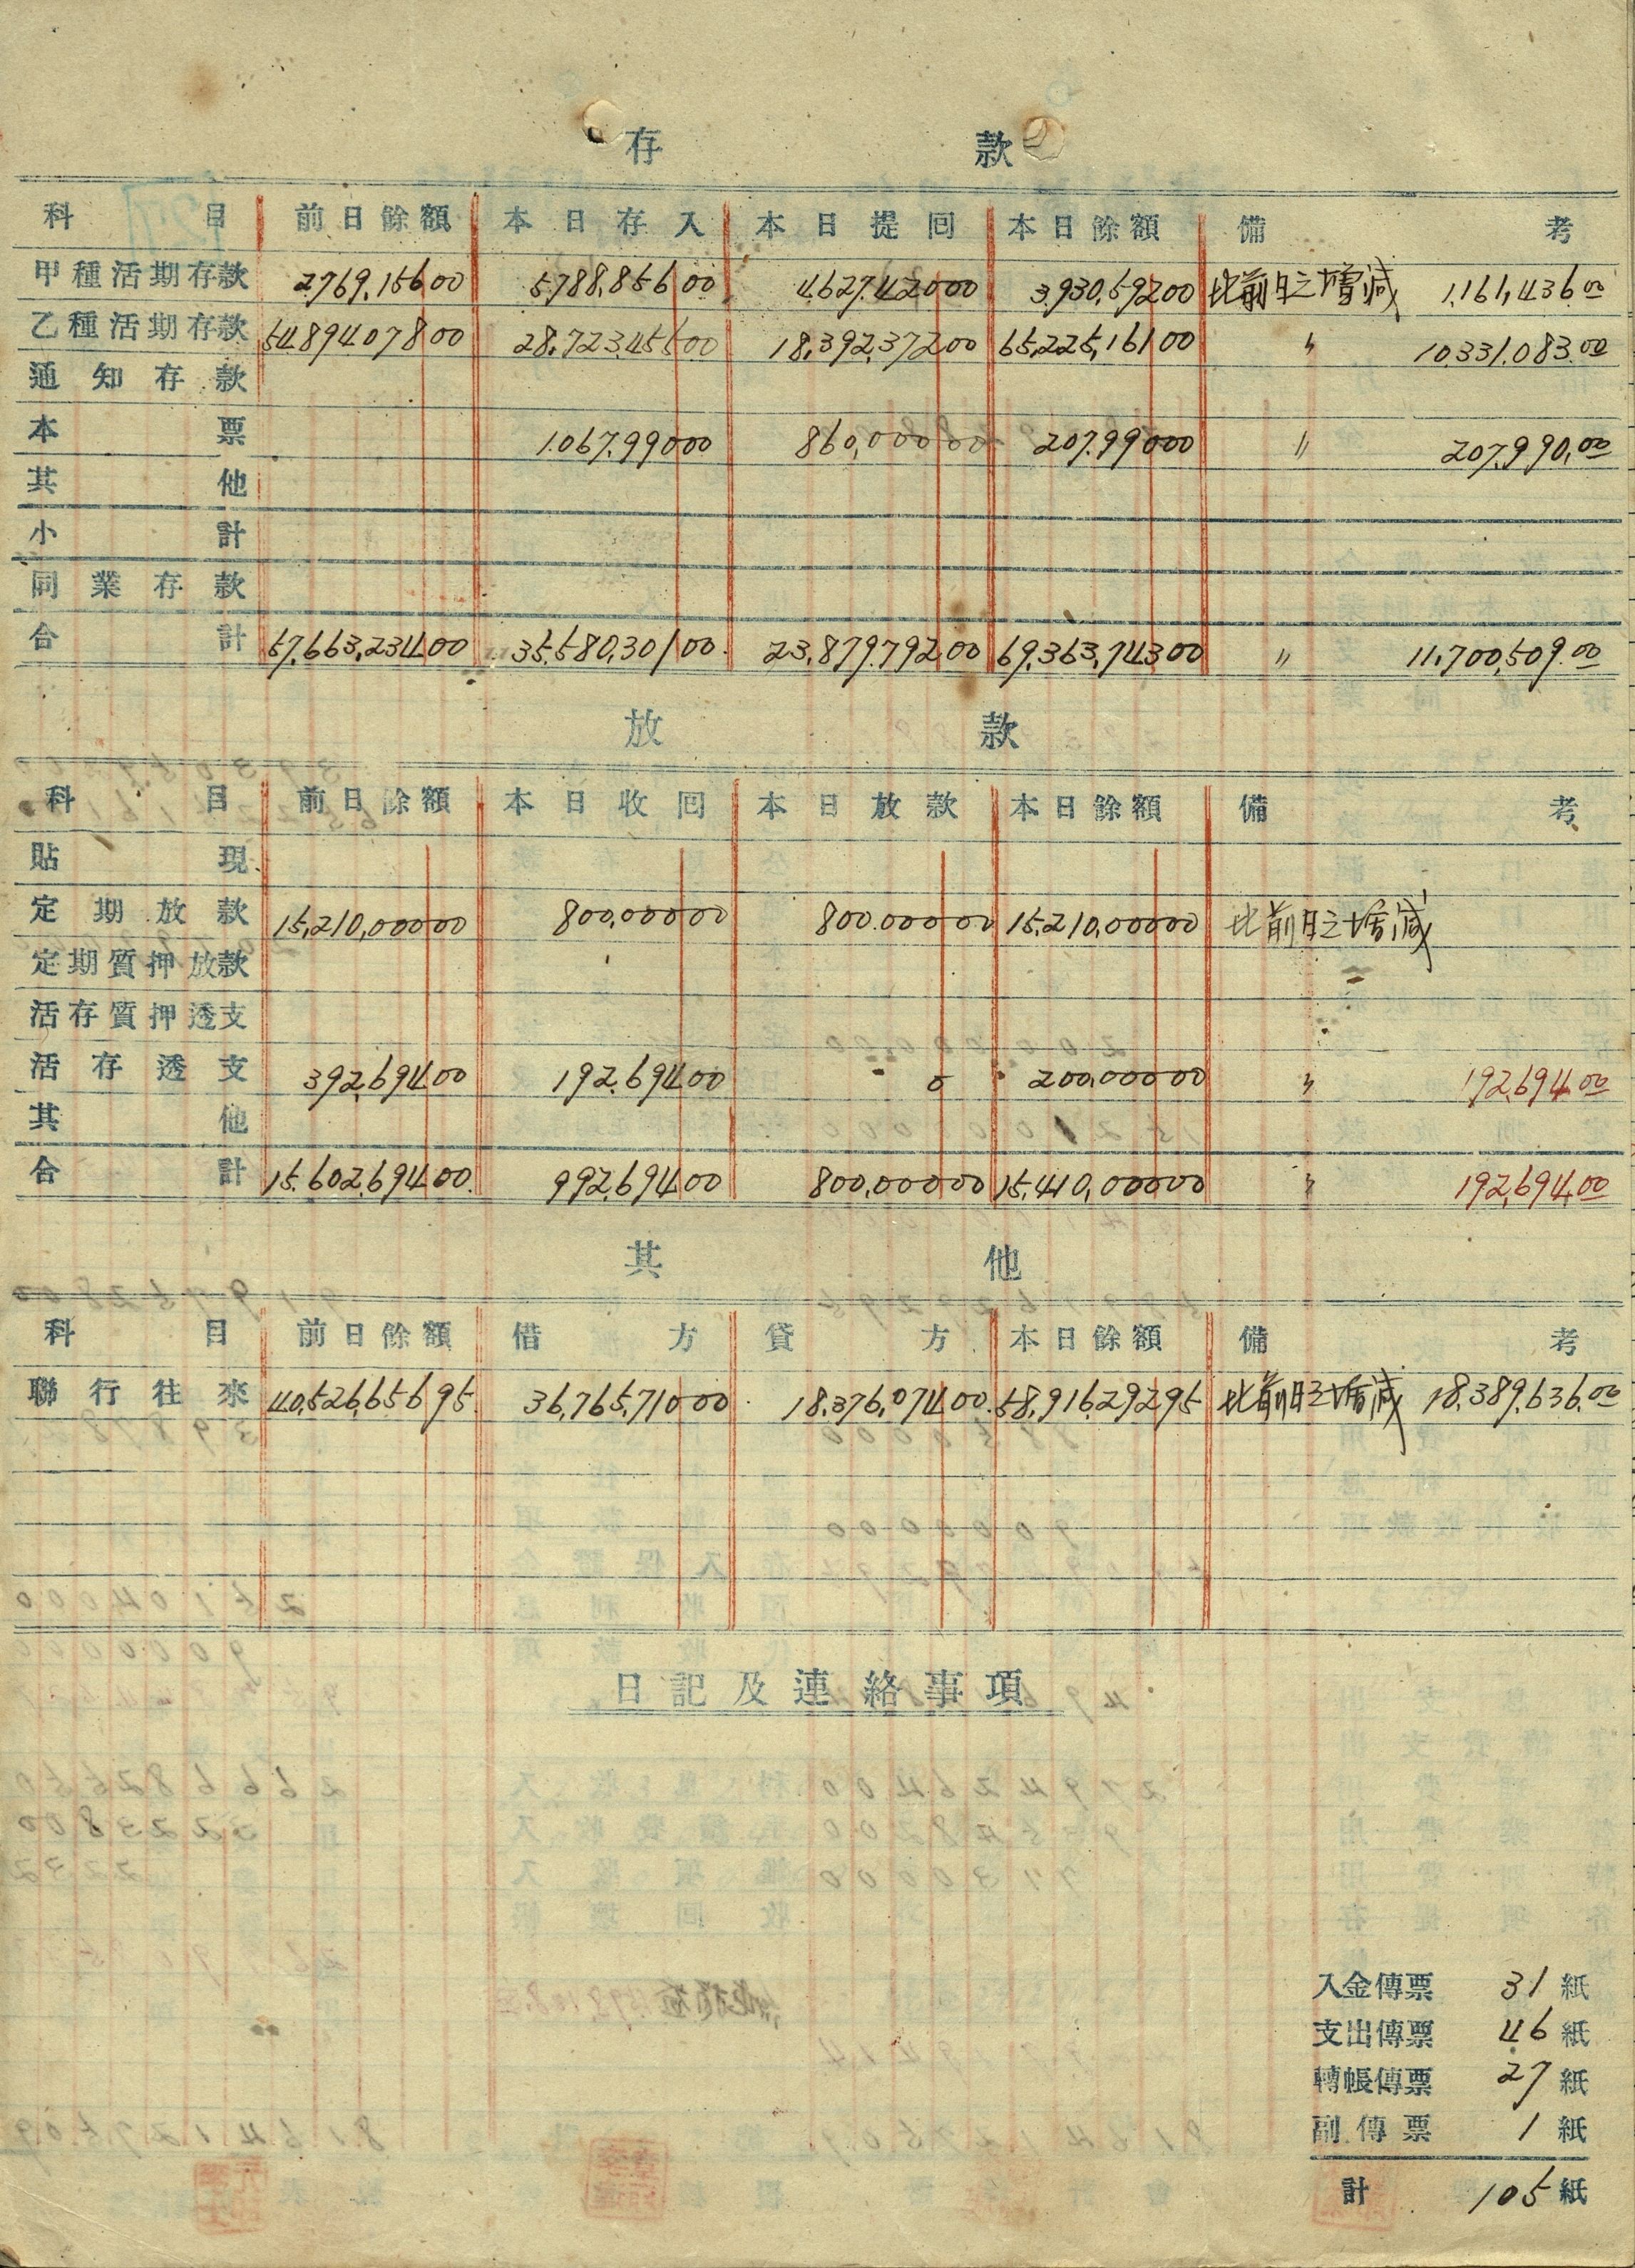 存款
科目 前日餘額 本日存入 本日提回 本日餘額 備考
甲種活期存款 2,769,156.00 5,788,856.00 4,627,420.00 3,930,592.00 比前日之増減 1,161,436.00
乙種活期存款 54,894,078.00 28,723,455.00 18,392,372.00 65,225,161.00 〃 10,331,083.00
通知存款
本票 1,067,990.00 860,000.00 207,990.00 〃 207,990.00
其他
小計
同業存款
合計 57,663,234.00 35,580,301.00 23,879,792.00 69,363,743.00 〃 11,700,509.00
放款
科目 前日餘額 本日收回 本日放款 本日餘額 備考
貼現
定期放款 15,210,000.00 800,000.00 800,000.00 15,210,000.00 比前日之増減
定期質押放款
活存質押透支
活存透支 392,694.00 192,694.00 0 200,000.00 〃 192,694.00
其他
合計 15,602,694.00 992,694.00 800,000.00 15,410,000.00 〃 192,694.00
其他
科目 前日餘額 借方 貸方 本日餘額 備考
聯行往來 40,526,656.95 36,765,710.00 18,376,074.00 58,916,292.95 比前日之増減 18,389,636.00
日記及連絡事項
入金傳票 31 紙
支出傳票 46 紙
轉帳傳票 27 紙
副傳票 1 紙
計 105 紙